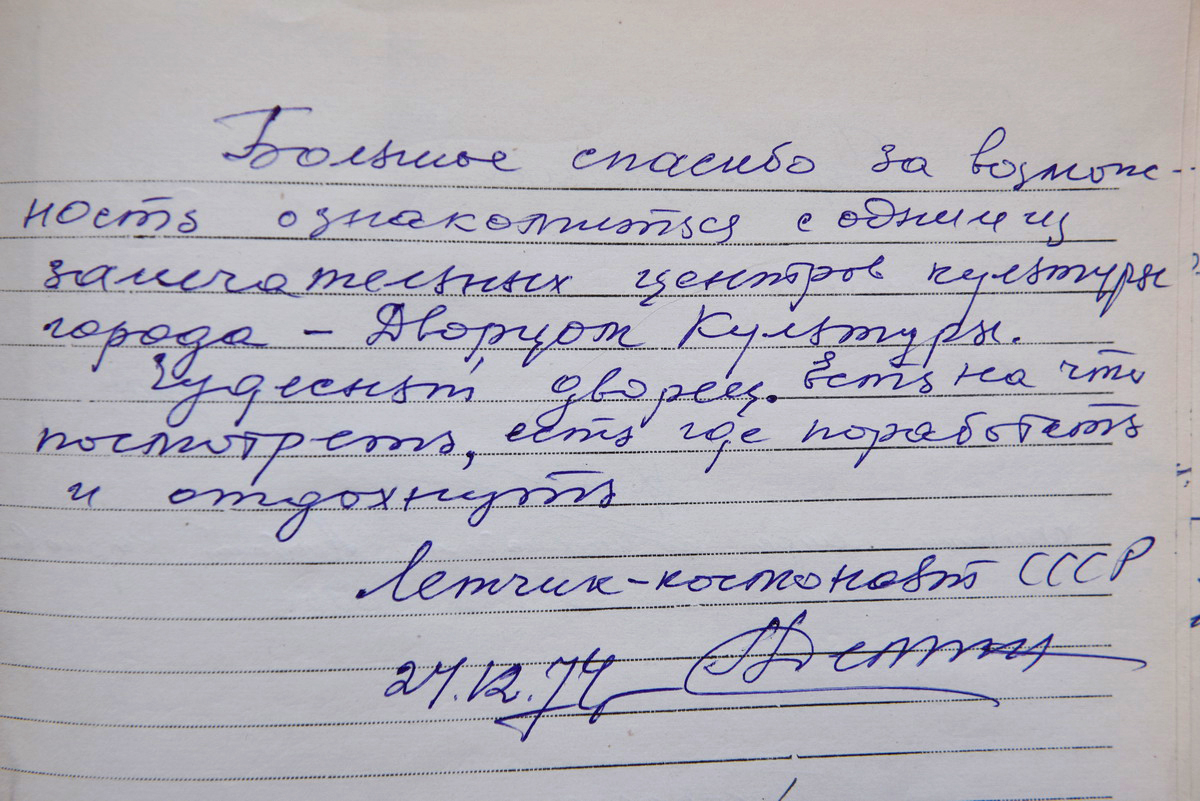 Большое спасибо за возмож-
ность ознакомиться с одним из
замечательных центров культуры
города – Дворцом Культуры.
Чудесный дворец. Есть на что
посмотреть, есть где поработать
и отдохнуть
Летчик-космонавт СССР
24.12.74